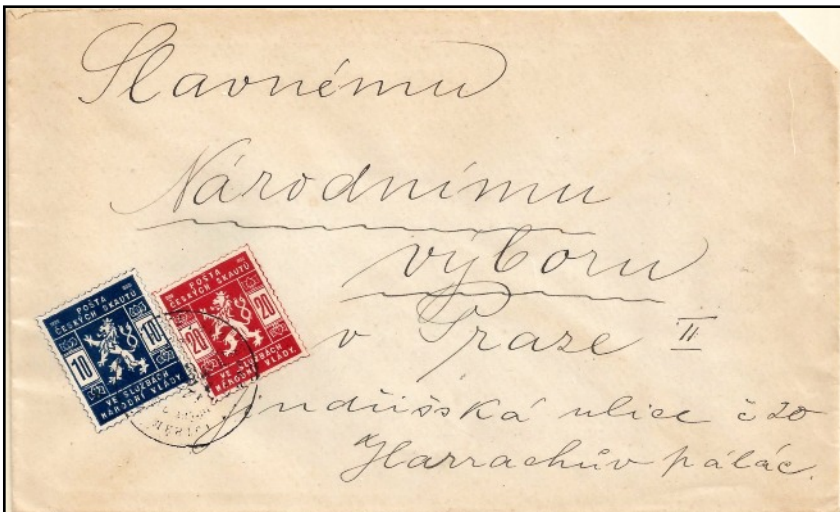 Slavnému
Národnímu
výboru
v Praze II
Jindřišská ulice č 20
Harrachův palác.
POŠTA
ČESKÝCH SKAUTŮ
10 10
VE SLUŽBÁCH
NÁRODNÍ VLÁDY
POŠTA
ČESKÝCH SKAUTŮ
20 20
VE SLUŽBÁCH
NÁRODNÍ VLÁDY.